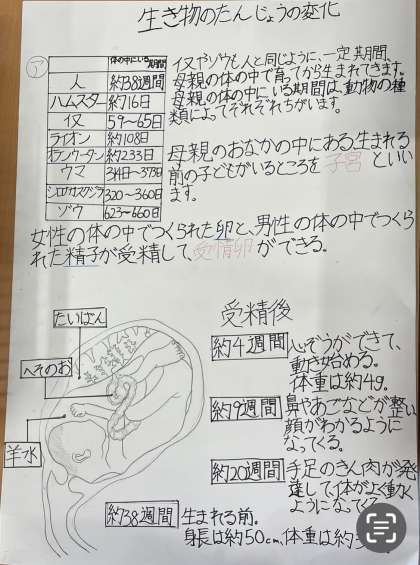 生き物のたんじょうの変化
ア
体の中にいる期間
人 約38週間
ハムスター 約16日
イヌ 59〜65日
ライオン 約108日
オランウータン 約233日
ウマ 日
シロナガスクジラ 320〜360日
ゾウ 623〜660日
イヌやゾウも人と同じように、一定期間、
母親の体の中で育ってから生まれてきます。
母親の体の中にいる期間は、動物の種
類によってそれぞれちがいます。
母親のおなかの中にある、生まれる
前の子どもがいるところを子宮といい
ます。
女性の体の中でつくられた卵と、男性の体の中でつくら
れた精子が受精して、受精卵ができる。
受精後
たいばん
へそのお
羊水
約4週間
心ぞうができて、
動き始める。
体重は約4g。
約9週間
鼻やあごなどが整い
顔がわかるように
なってくる。
約20週間
手足のきん肉が発
達して、体がよく動く
ようになってくる
約38週間
生まれる前。
身長は約50cm、体重は約